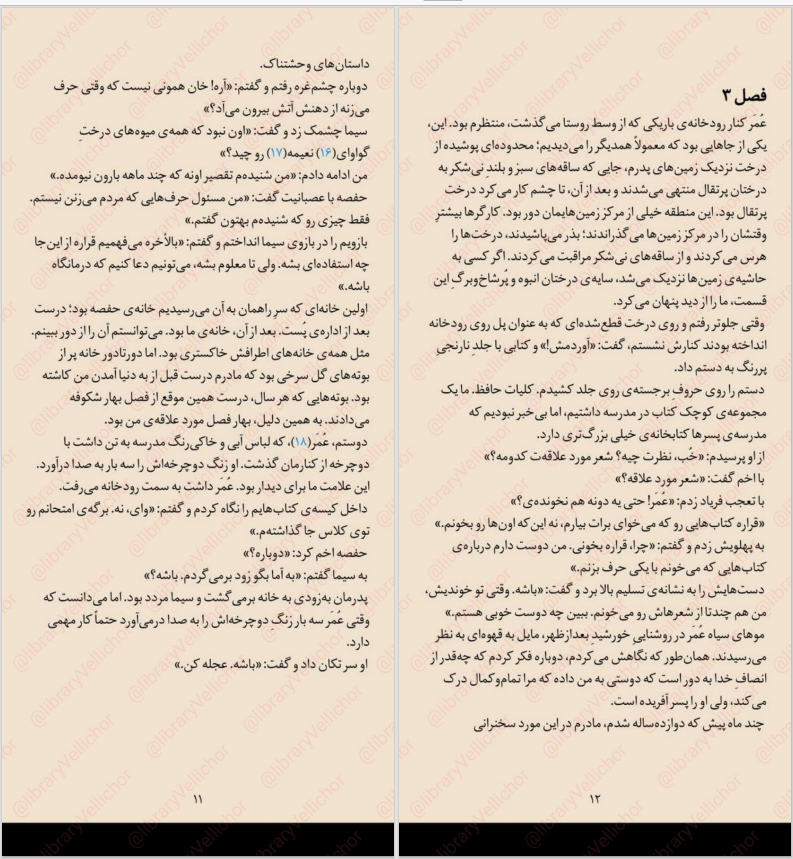 داستان‌های وحشتناک.
دوباره چشم‌غره رفتم و گفتم: «آره! خان همونی نیست که وقتی حرف
می‌زنه از دهنش آتش بیرون می‌آد؟»
سیما چشمک زد و گفت: «اون نبود که همه‌ی میوه‌های درختِ
گواوای(۱۶) نعیمه(۱۷) رو چید؟»
من ادامه دادم: «من شنیده‌م تقصیر اونه که چند ماهه بارون نیومده.»
حفصه با عصبانیت گفت: «من مسئول حرف‌هایی که مردم می‌زنن نیستم.
فقط چیزی رو که شنیده‌م بهتون گفتم.»
بازویم را در بازوی سیما انداختم و گفتم: «بالأخره می‌فهمیم قراره از این‌جا
چه استفاده‌ای بشه. ولی تا معلوم بشه، می‌تونیم دعا کنیم که درمانگاه
باشه.»
اولین خانه‌ای که سرِ راهمان به آن می‌رسیدیم خانه‌ی حفصه بود؛ درست
بعد از اداره‌ی پُست. بعد از آن، خانه‌ی ما بود. می‌توانستم آن را از دور ببینم.
مثل همه‌ی خانه‌های اطرافش خاکستری بود. اما دورتادور خانه پر از
بوته‌های گل سرخی بود که مادرم درست قبل از به دنیا آمدن من کاشته
بود. بوته‌هایی که هر سال، درست همین موقع از فصل بهار شکوفه
می‌دادند. به همین دلیل، بهار فصل مورد علاقه‌ی من بود.
دوستم، عُمَر(۱۸)، که لباس آبی و خاکی‌رنگ مدرسه به تن داشت با
دوچرخه از کنارمان گذشت. او زنگ دوچرخه‌اش را سه بار به صدا درآورد.
این علامت ما برای دیدار بود. عُمَر داشت به سمت رودخانه می‌رفت.
داخل کیسه‌ی کتاب‌هایم را نگاه کردم و گفتم: «وای، نه. برگه‌ی امتحانم رو
توی کلاس جا گذاشته‌م.»
حفصه اخم کرد: «دوباره؟»
به سیما گفتم: «به آما بگو زود برمی‌گردم. باشه؟»
پدرمان به‌زودی به خانه برمی‌گشت و سیما مردد بود. اما می‌دانست که
وقتی عُمَر سه بار زنگِ دوچرخه‌اش را به صدا درمی‌آورد حتماً کار مهمی
دارد.
او سر تکان داد و گفت: «باشه. عجله کن.»
۱۱
فصل ۳
عُمَر کنار رودخانه‌ی باریکی که از وسط روستا می‌گذشت، منتظرم بود. این،
یکی از جاهایی بود که معمولاً همدیگر را می‌دیدیم؛ محدوده‌ای پوشیده از
درخت نزدیک زمین‌های پدرم، جایی که ساقه‌های سبز و بلندِ نی‌شکر به
درختان پرتقال منتهی می‌شدند و بعد از آن، تا چشم کار می‌کرد درخت
پرتقال بود. این منطقه خیلی از مرکز زمین‌هایمان دور بود. کارگرها بیشترِ
وقتشان را در مرکز زمین‌ها می‌گذراندند؛ بذر می‌پاشیدند، درخت‌ها را
هرس می‌کردند و از ساقه‌های نی‌شکر مراقبت می‌کردند. اگر کسی به
حاشیه‌ی زمین‌ها نزدیک می‌شد، سایه‌ی درختان انبوه و پُرشاخ‌وبرگِ این
قسمت، ما را از دید پنهان می‌کرد.
وقتی جلوتر رفتم و روی درخت قطع‌شده‌ای که به عنوان پل روی رودخانه
انداخته بودند کنارش نشستم، گفت: «آوردمش!» و کتابی با جلدِ نارنجیِ
پررنگ به دستم داد.
دستم را روی حروفِ برجسته‌ی روی جلد کشیدم. کلیات حافظ. ما یک
مجموعه‌ی کوچک کتاب در مدرسه داشتیم، اما بی‌خبر نبودیم که
مدرسه‌ی پسرها کتابخانه‌ی خیلی بزرگ‌تری دارد.
از او پرسیدم: «خُب، نظرت چیه؟ شعر مورد علاقه‌ت کدومه؟»
با اخم گفت: «شعر مورد علاقه؟»
با تعجب فریاد زدم: «عُمَر! حتی یه دونه هم نخونده‌ی؟»
«قراره کتاب‌هایی رو که می‌خوای برات بیارم، نه این‌که اون‌ها رو بخونم.»
به پهلویش زدم و گفتم: «چرا، قراره بخونی. من دوست دارم درباره‌ی
کتاب‌هایی که می‌خونم با یکی حرف بزنم.»
دست‌هایش را به نشانه‌ی تسلیم بالا برد و گفت: «باشه. وقتی تو خوندیش،
من هم چندتا از شعرهاش رو می‌خونم. ببین چه دوست خوبی هستم.»
موهای سیاه عُمَر در روشناییِ خورشیدِ بعدازظهر، مایل به قهوه‌ای به نظر
می‌رسیدند. همان‌طور که نگاهش می‌کردم، دوباره فکر کردم که چه‌قدر از
انصافِ خدا به دور است که دوستی به من داده که مرا تمام‌وکمال درک
می‌کند، ولی او را پسر آفریده است.
چند ماه پیش که دوازده‌ساله شدم، مادرم در این مورد سخنرانی
۱۲
@libraryVellichor